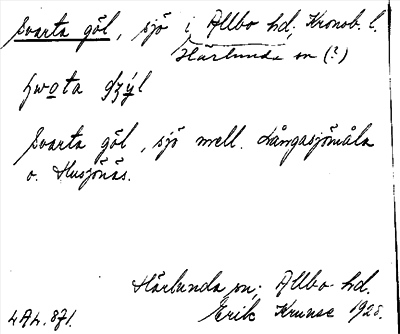 Svarta göl, sjö i Allbo hd, Kronob. l.
Härlunda sn (?)
Svarta göl, sjö mell. Långasjömåla
o. Husjönäs.
Härlunda sn; Allbo hd.
LAL. 871. Erik Kruuse 1925.